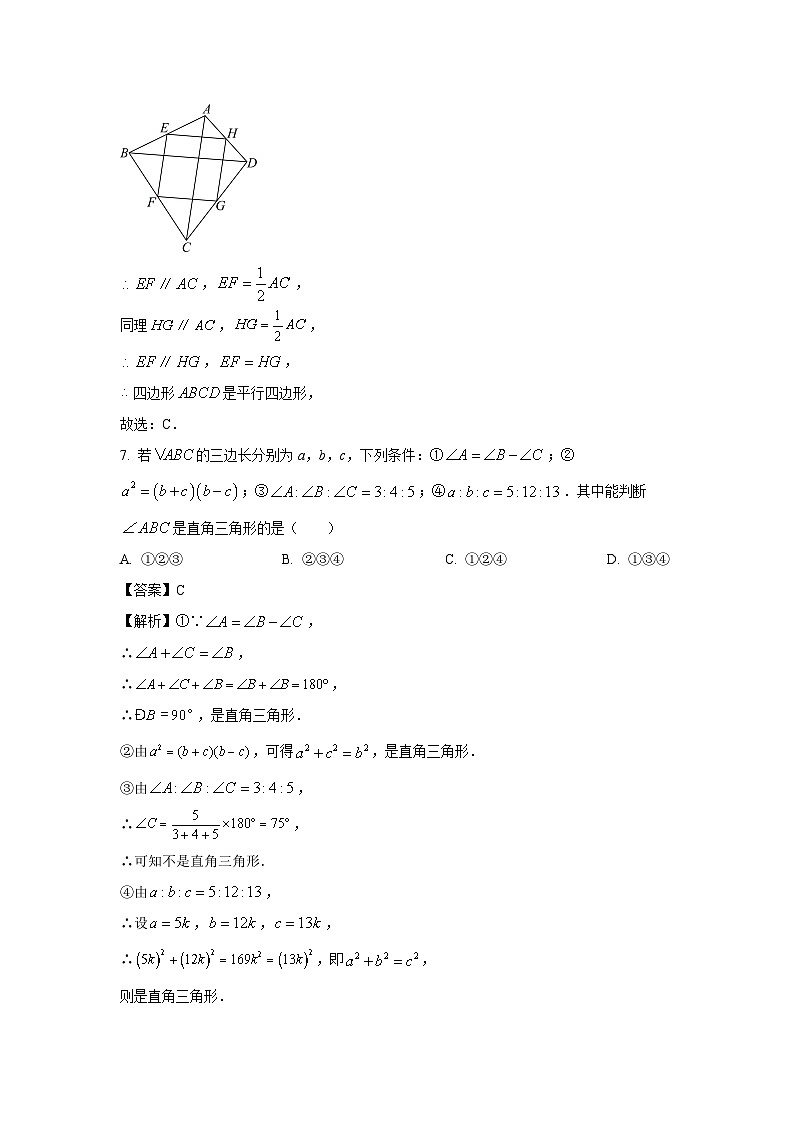 A
E
H
B
D
F
G
C
∴ EF // AC，EF = 1/2 AC，
同理 HG // AC，HG = 1/2 AC，
∴ EF // HG，EF = HG，
∴ 四边形 ABCD 是平行四边形，
故选：C．
7. 若 VABC 的三边长分别为 a，b，c，下列条件：①∠A = ∠B − ∠C；②
a² = (b + c)(b − c)；③∠A : ∠B : ∠C = 3 : 4 : 5；④a : b : c = 5 : 12 : 13．其中能判断
∠ABC 是直角三角形的是（　　）
A. ①②③ B. ②③④ C. ①②④ D. ①③④
【答案】C
【解析】①∵∠A = ∠B − ∠C，
∴∠A + ∠C = ∠B，
∴∠A + ∠C + ∠B = ∠B + ∠B = 180°，
∴ÐB = 90°，是直角三角形．
②由 a² = (b + c)(b − c)，可得 a² + c² = b²，是直角三角形．
③由∠A : ∠B : ∠C = 3 : 4 : 5，
∴∠C = 5/(3 + 4 + 5) × 180° = 75°，
∴可知不是直角三角形．
④由 a : b : c = 5 : 12 : 13，
∴设 a = 5k，b = 12k，c = 13k，
∴(5k)² + (12k)² = 169k² = (13k)²，即 a² + b² = c²，
则是直角三角形．